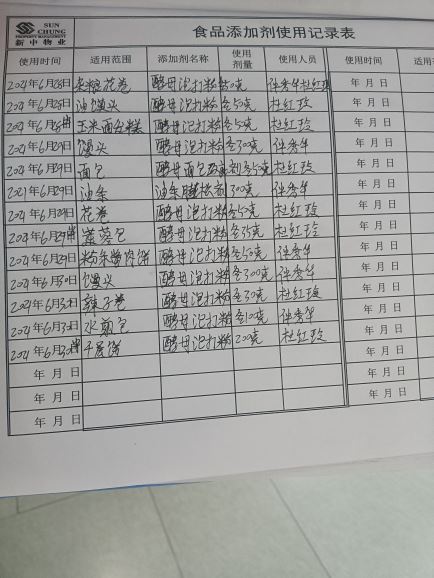 SUN CHUNG
PROPERTY MANAGEMENT
新中物业
食品添加剂使用记录表
使用时间 适用范围 添加剂名称 使用剂量 使用人员 使用时间 适用
2024年6月28日 杂粮花卷 酵母泡打粉各50克 佟秀华杜红玲 年 月 日
2024年6月28日 油馒头 酵母泡打粉各50克 杜红玲 年 月 日
2024年6月28日 玉米面发糕 酵母泡打粉各50克 杜红玲 年 月 日
2024年6月29日 馒头 酵母泡打粉各300克 佟秀华 年 月 日
2024年6月29日 面包 酵母面包改良剂各15克 杜红玲 年 月 日
2024年6月29日 油条 油条膨松剂300克 佟秀华 年 月 日
2024年6月29日 花卷 酵母泡打粉各50克 杜红玲 年 月 日
2024年6月29日 包 酵母泡打粉各35克 杜红玲 年 月 日
2024年6月29日 粉条酱肉饼 酵母泡打粉各50克 佟秀华 年 月 日
2024年6月30日 馒头 酵母泡打粉各300克 佟秀华 年 月 日
2024年6月30日 辣子卷 酵母泡打粉各30克 杜红玲 年 月 日
2024年6月30日 水煎包 酵母泡打粉各10克 佟秀华 年 月 日
2024年6月30日 千层饼 酵母泡打粉200克 杜红玲 年 月 日
年 月 日 年 月 日
年 月 日 年 月 日
年 月 日 年 月 日